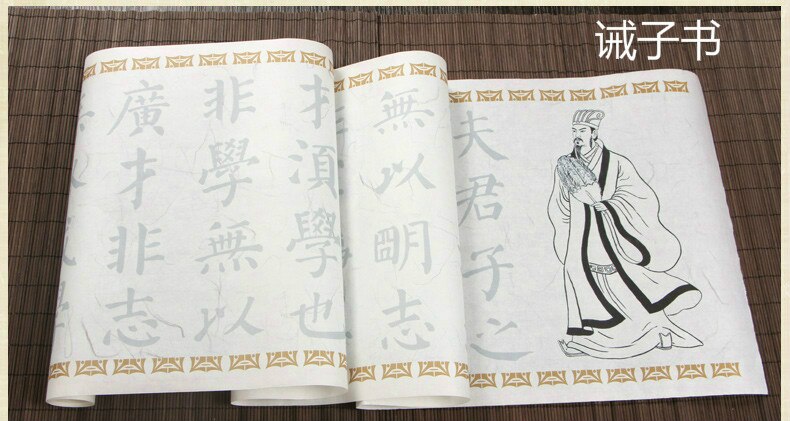 诫子书
夫君子之
無以明志
才須學也
非學無以
廣才非志